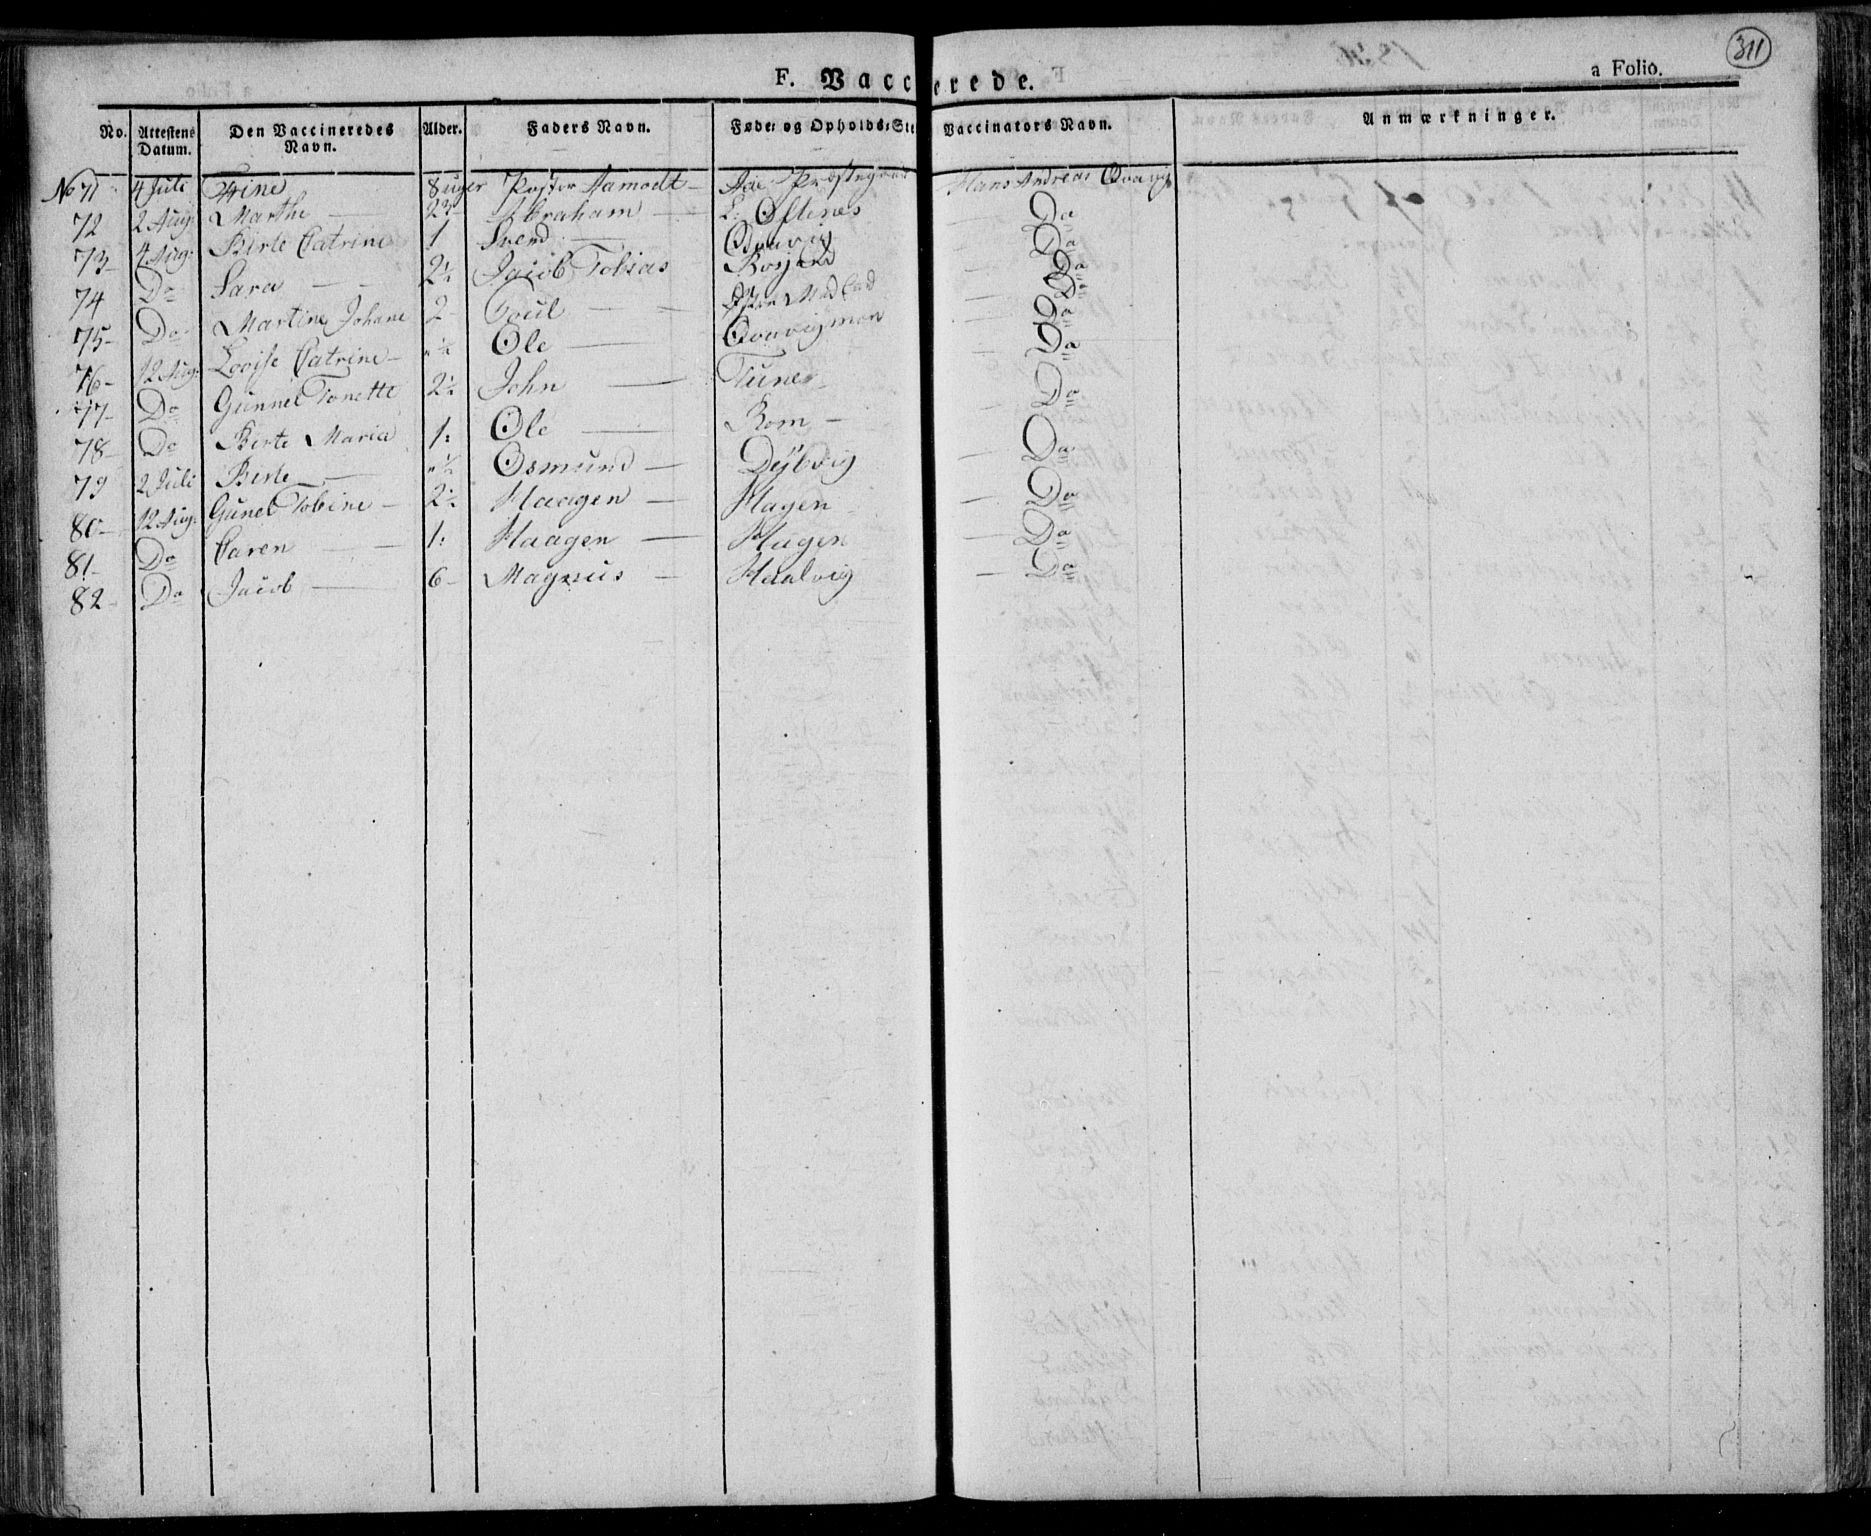 311
F. Vaccinerede.
a Folio.
No. Attestens Datum. Den Vaccineredes Navn. Alder. Faders Navn. Føde- og Opholds-Ste Vaccinators Navn. Anmærkninger.
No 71 4 Juli Trine 8 uger Pastor Aamodt — Præstegaard Hans Andreas Qvavig
72 2 Aug: Marthe — 2 Abraham — Oftenes — Do
73 – 4 Aug: Birte Catrine 1 Svend — Qvavig — Do
74 Do Sara — 2½ Jacob Tobias — Do
75 – Do Martine Johane 2 – — — Do
76 – 12 Aug: Lovise Catrine – ½ Ole — Qvavigmon — Do
77 – Do Gunnel Tonette 2½ John — Do
78 – Do Birte Maria 1: Ole — Rom – — Do
79 2 Juli Birte — ½ Osmund — Dybvig — Do
80 – 12 Aug: Gunel Tobine – 2½ Haagen — Hagen — Do
81 – Do Caren — 1: Haagen — Hagen — Do
82 – Do Jacob — 6 – Magnus — — Do